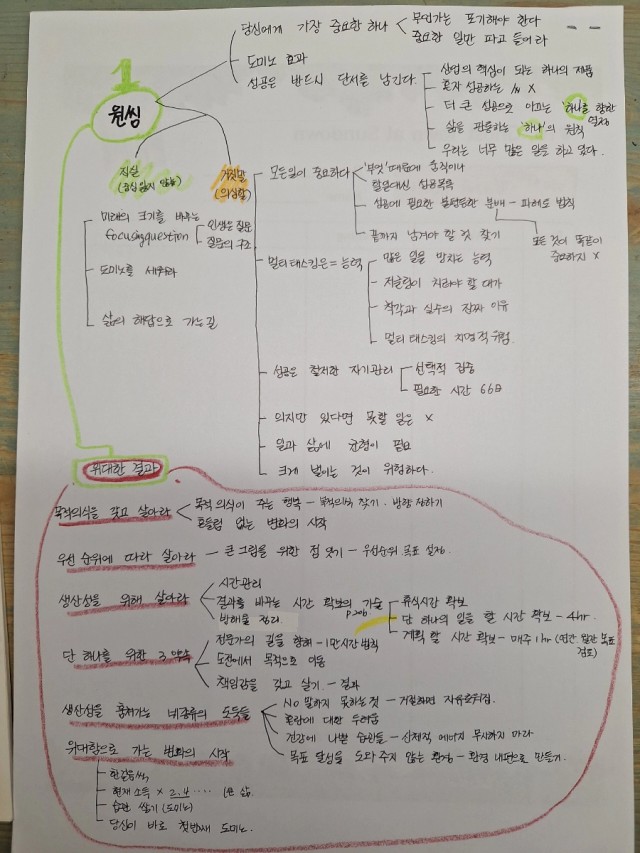 당신에게 가장 중요한 하나
무언가는 포기해야 한다
중요한 일만 파고 들어라
도미노 효과
성공은 반드시 단서를 남긴다.
사업의 핵심이 되는 하나의 제품
혼자 성공하는 사람 X
더 큰 성공으로 이끄는 '하나'를 향한 열정
삶을 관통하는 '하나'의 원칙
우리는 너무 많은 일을 하고 있다.
1
원씽
진실
거짓말
(의심할)
미래의 크기를 바꾸는
focusing question
인생은 질문
질문의 구조
도미노를 세워라
삶의 해답으로 가는 길
모든일이 중요하다
'무엇' 때문에 움직이나
할일대신 성공목록
성공에 필요한 불평등한 분배 - 파레토 법칙
끝까지 남겨야 할 것 찾기
모든 것이 똑같이
중요하지 X
멀티태스킹은 = 능력
많은 일을 망치는 능력
저글링이 치러야 할 대가
착각과 실수의 진짜 이유
멀티태스킹의 치명적 위험.
성공은 철저한 자기관리
선택적 집중
필요한 시간 66日
의지만 있다면 못할 일은 X
일과 삶에 균형이 필요
크게 벌이는 것이 위험하다.
위대한 결과
목적의식을 갖고 살아라
목적 의식이 주는 행복 - 목적의식 찾기. 방향 정하기
흔들림 없는 변화의 시작
우선 순위에 따라 살아라 - 큰 그림을 위한 점 잇기 - 우선순위. 목표 설정.
생산성을 위해 살아라
시간관리
결과를 바꾸는 시간 확보의 기술
p.206.
방해물 정리
휴식시간 확보
단 하나의 일을 할 시간 확보 - 4hr.
계획 할 시간 확보 - 매주 1hr (연간. 월간 목표 검토)
단 하나를 위한 3 약속
전문가의 길을 향해 - 1만시간 법칙
도전에서 목적으로 이동
책임감을 갖고 살기 - 결과
생산성을 훔쳐가는 네종류의 도둑들
No 말하지 못하는 것 -
혼란에 대한 두려움
건강에 나쁜 습관들 - 신체적, 에너지 무시하지 마라
목표 달성을 도와 주지 않는 환경 - 환경 내편으로 만들기.
위대함으로 가는 변화의 시작
한걸음씩,
현재 소득 × 2. 4 ···· 큰 삶.
습관 쌓기 (도미노)
당신이 바로 첫번째 도미노.